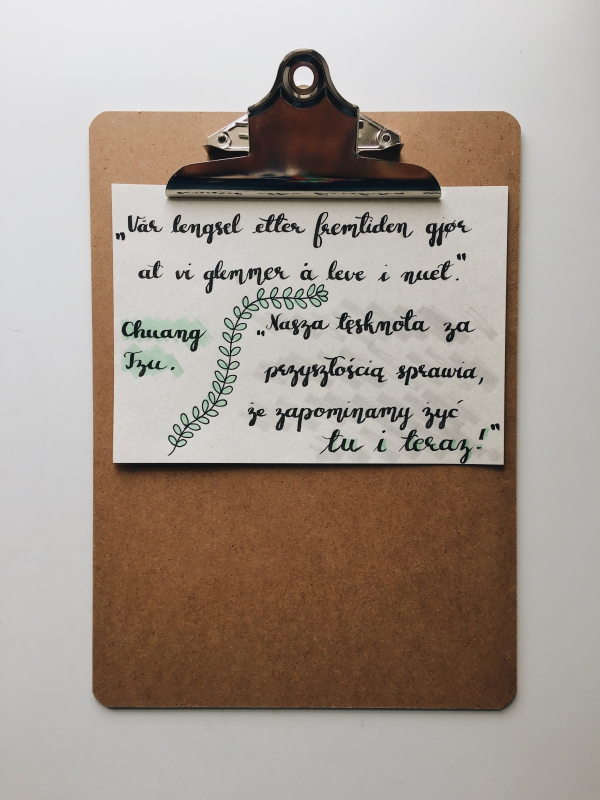 „Vår lengsel etter fremtiden gjør
at vi glemmer å leve i nuet."
Chuang
Tzu.
„Nasza tęsknota za
przyszłością sprawia,
że zapominamy żyć
tu i teraz!"